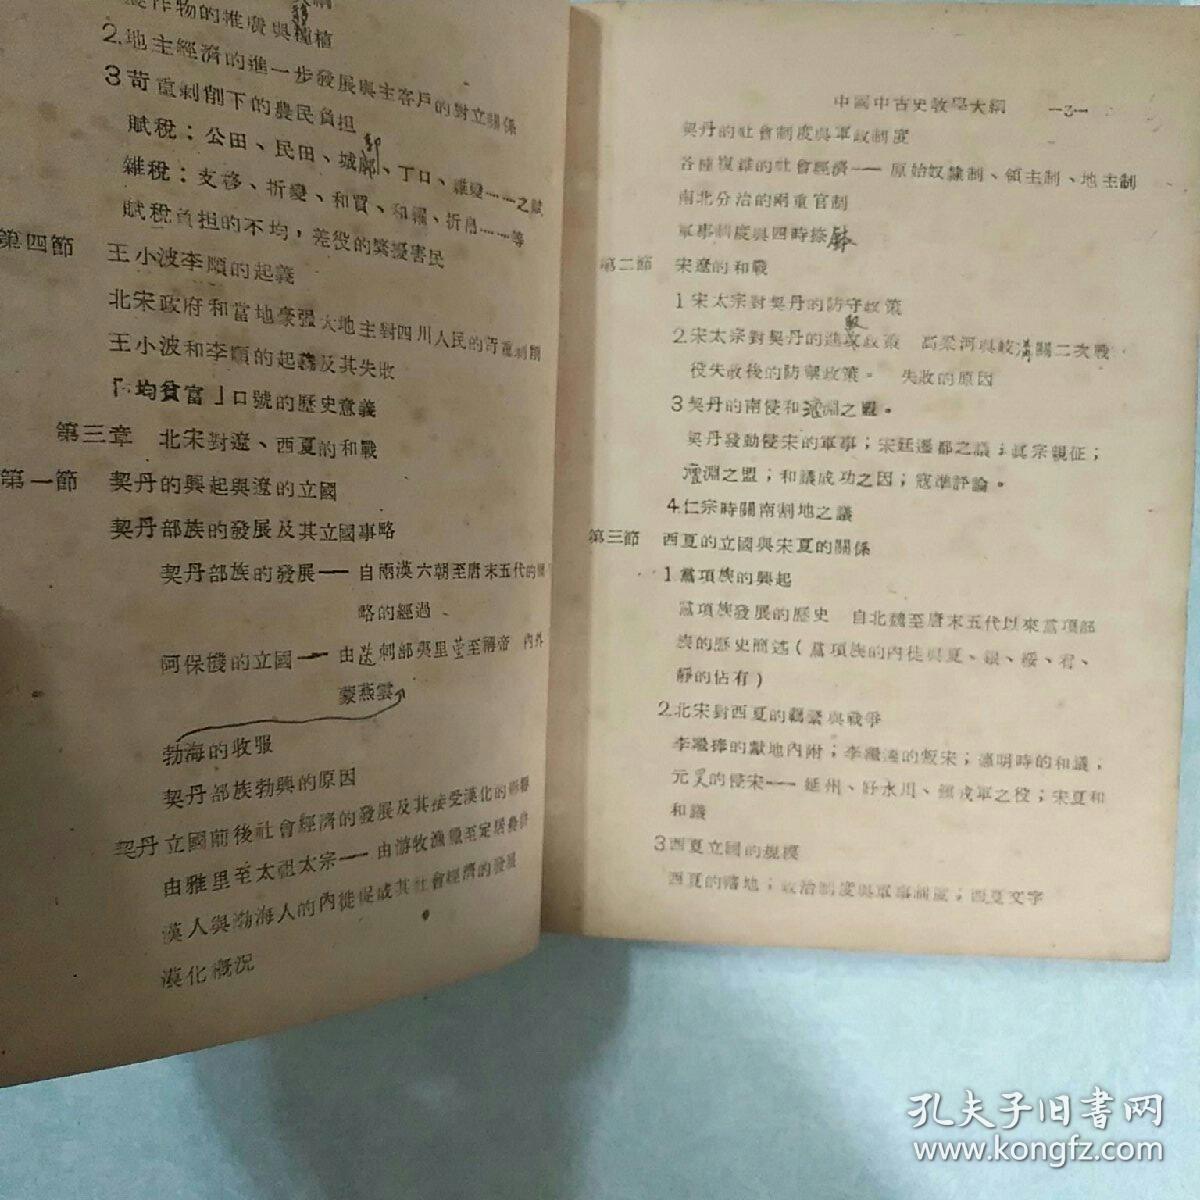 作物的推廣與種植
2.地主經濟的進一步發展與主客戶的對立關係
3苛重剝削下的農民負担
賦稅：公田、民田、城郭、丁口、雜變……之賦
雜稅：支移、折變、和買、和糴、折帛……等
賦稅負担的不均，差役的繁擾害民
第四節 王小波李順的起義
北宋政府和當地豪强大地主對四川人民的苛重剝削
王小波和李順的起義及其失敗
「均貧富」口號的歷史意義
第三章 北宋對遼、西夏的和戰
第一節 契丹的興起與遼的立國
契丹部族的發展及其立國事略
契丹部族的發展——自兩漢六朝至唐末五代的
略的經過
阿保機的立國——由迭剌部夷里堇至稱帝 內外
蒙燕雲
勃海的收服
契丹部族勃興的原因
契丹立國前後社會經濟的發展及其接受漢化的
由雅里至太祖太宗——由游牧漁獵至定居
漢人與渤海人的內徙促成其社會經濟的發展
漢化概況
中國中古史教學大綱 —3—
契丹的社會制度與軍政制度
各種複雜的社會經濟——原始奴隸制、領主制、地主制
南北分治的兩重官制
軍事制度與四時捺鉢
第二節 宋遼的和戰
1宋太宗對契丹的防守政策
2.宋太宗對契丹的進取政策 高梁河與岐溝關二次戰
役失敗後的防禦政策。 失敗的原因
3契丹的南侵和澶淵之盟。
契丹發動侵宋的軍事；宋廷遷都之議；眞宗親征；
澶淵之盟；和議成功之因；寇準評論。
4.仁宗時關南割地之議
第三節 西夏的立國與宋夏的關係
1黨項族的興起
黨項族發展的歷史 自北魏至唐末五代以來黨項部
族的歷史簡述（黨項族的內徙與夏、銀、綏、宥、
靜的佔有）
2.北宋對西夏的羈縻與戰爭
李繼捧的獻地內附；李繼遷的叛宋；德明時的和議；
元昊的侵宋——延州、好水川、鎮戎軍之役；宋夏和
和議
3西夏立國的規模
西夏的疆地；政治制度與軍事制度；西夏文字
孔夫子旧书网
www.kongfz.com